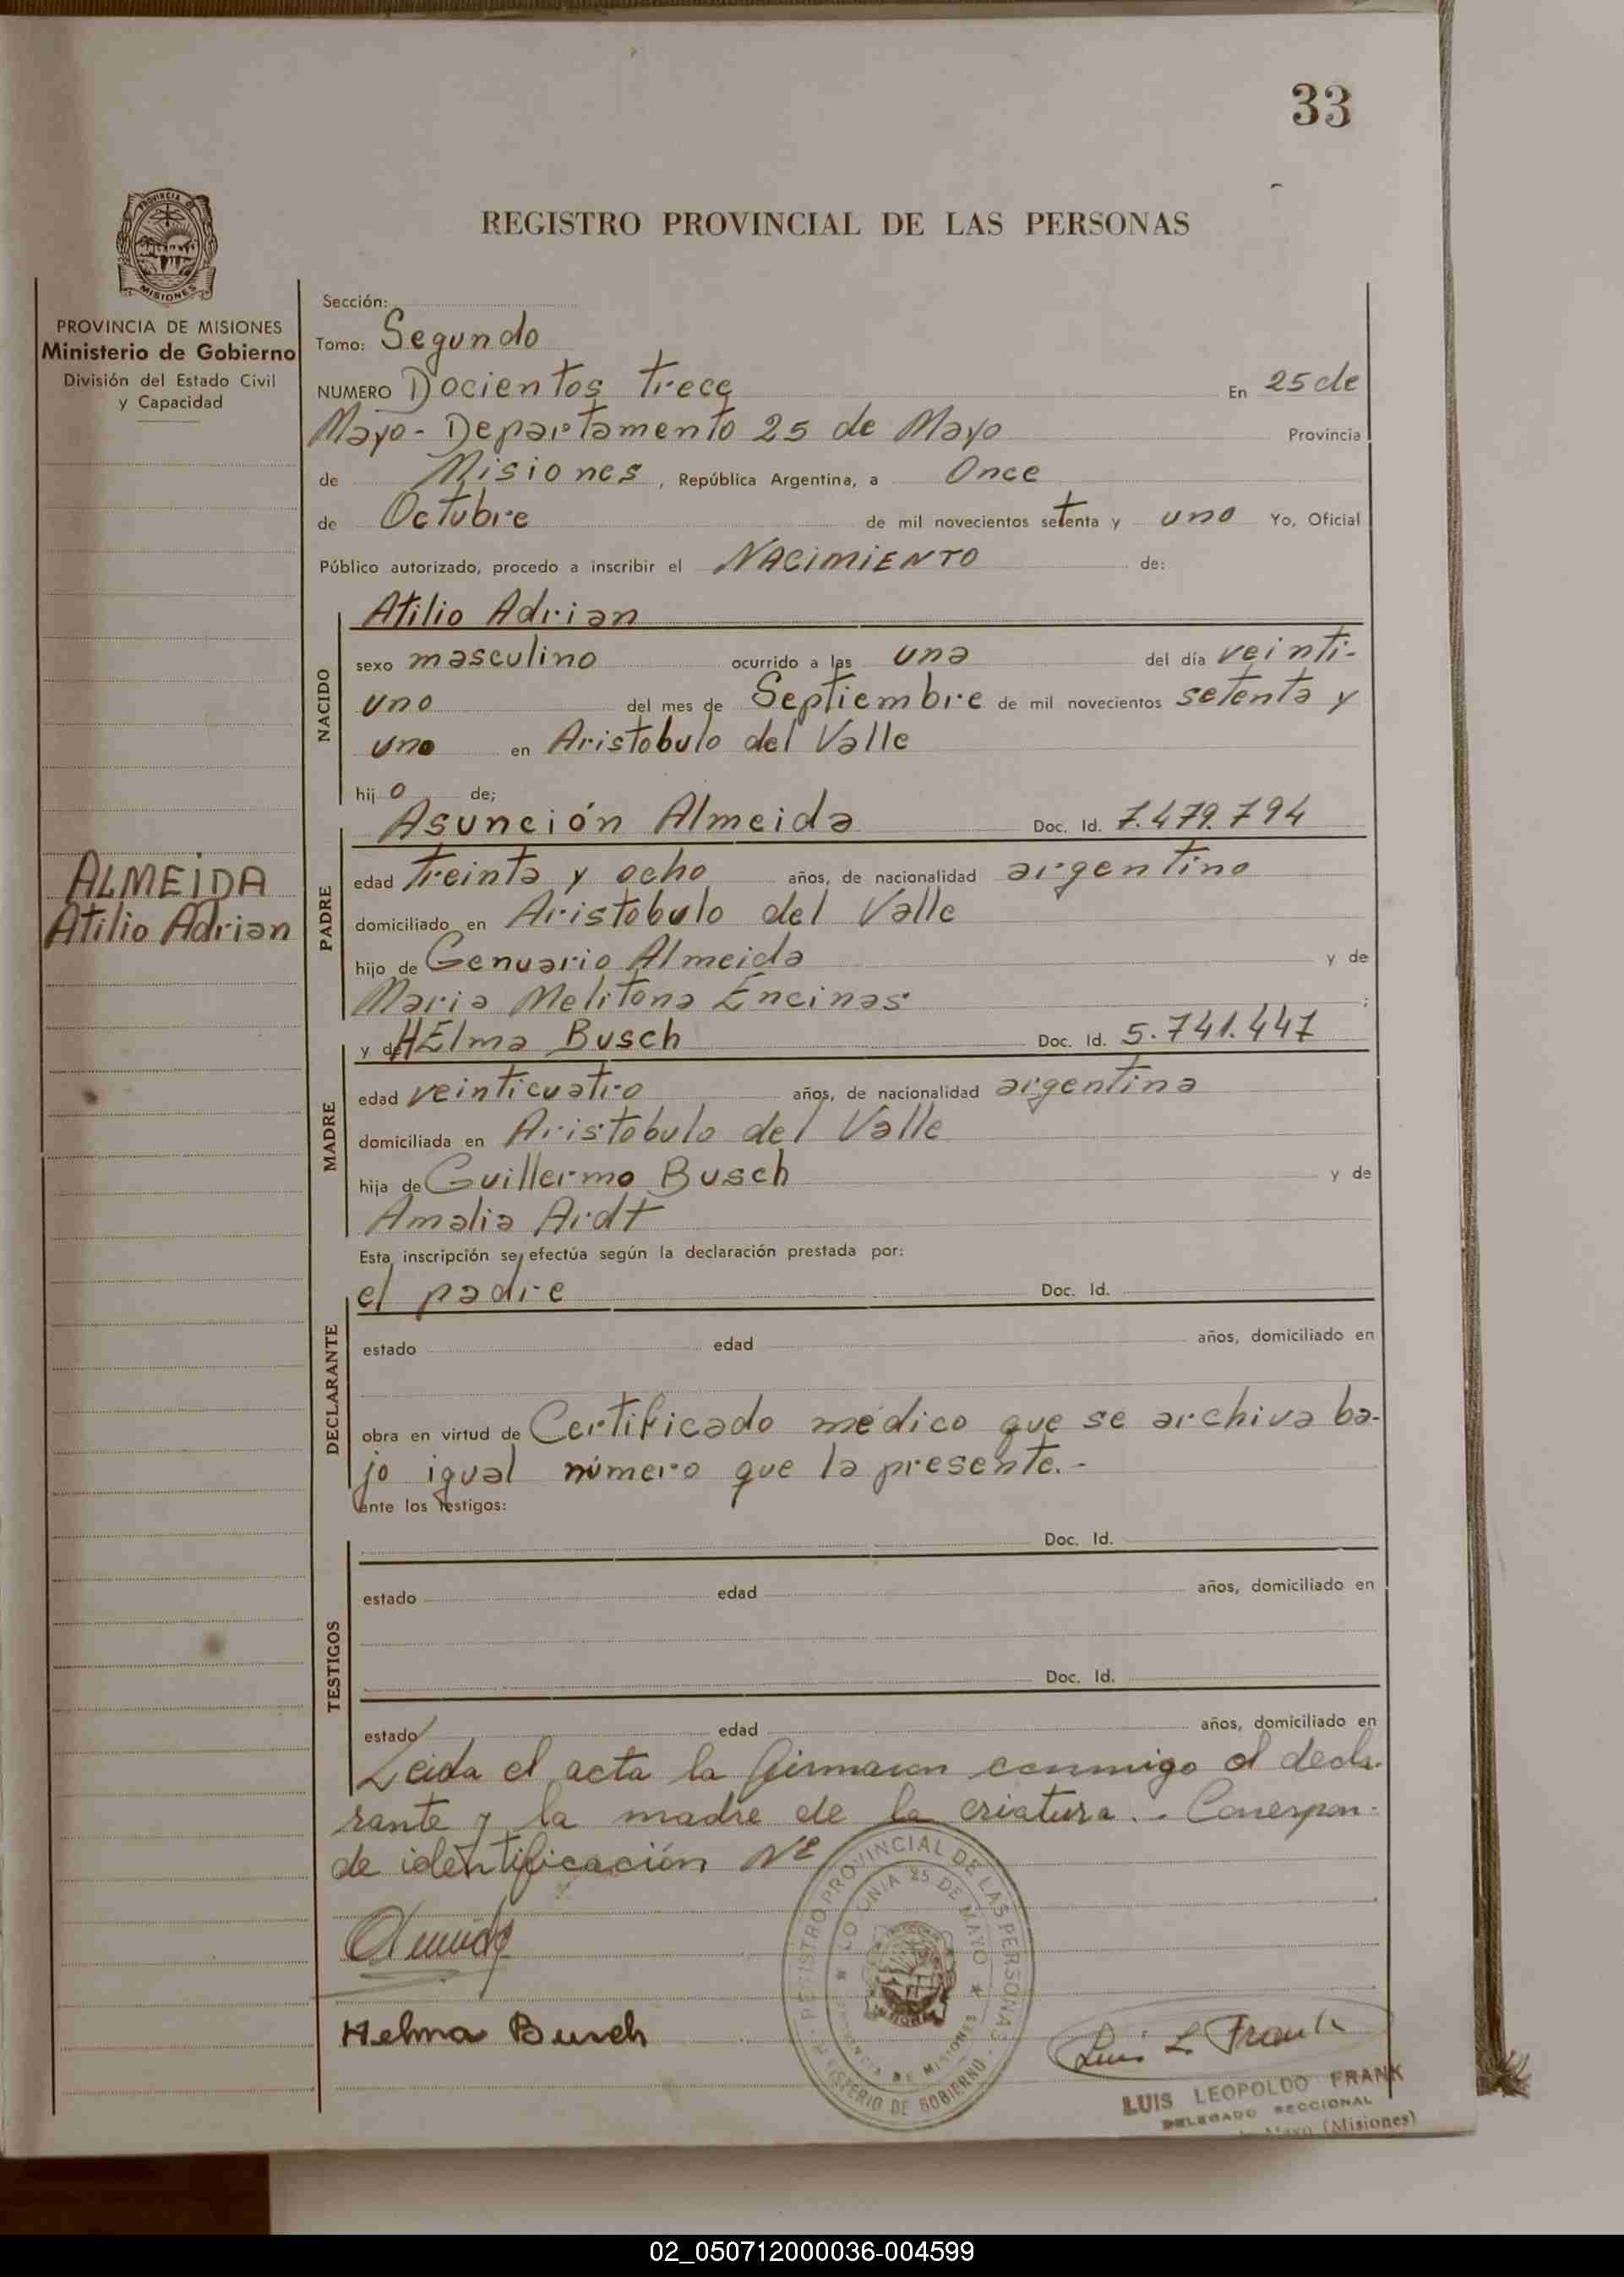 33
REGISTRO PROVINCIAL DE LAS PERSONAS
PROVINCIA DE MISIONES
Ministerio de Gobierno
División del Estado Civil
y Capacidad
Sección:
Tomo: Segundo
NUMERO Docientos trece En 25 de
Mayo - Departamento 25 de Mayo Provincia
de Misiones, República Argentina, a Once
de Octubre de mil novecientos setenta y uno Yo, Oficial
Público autorizado, procedo a inscribir el NACIMIENTO de:
NACIDO
Atilio Adrian
sexo masculino ocurrido a las una del día veinti-
uno del mes de Septiembre de mil novecientos setenta y
uno en Aristobulo del Valle
hij o de;
ALMEIDA
Atilio Adrian
PADRE
Asunción Almeida Doc. Id. 7.479.794
edad treinta y ocho años, de nacionalidad argentino
domiciliado en Aristobulo del Valle
hijo de Genuario Almeida y de
Maria Melitona Encinas ;
MADRE
y de HElma Busch Doc. Id. 5.741.447
edad veinticuatro años, de nacionalidad argentina
domiciliada en Aristobulo del Valle
hija de Guillermo Busch y de
Amalia Ardt
Esta inscripción se efectúa según la declaración prestada por:
DECLARANTE
el padre Doc. Id.
estado edad años, domiciliado en
obra en virtud de Certificado médico que se archiva ba-
jo igual número que la presente.-
ante los testigos:
TESTIGOS
Doc. Id.
estado edad años, domiciliado en
Doc. Id.
estado edad años, domiciliado en
Leida el acta la firmaron conmigo el decla-
rante y la madre de la criatura.. Correspon-
de identificación Nº
REGISTRO PROVINCIAL DE LAS PERSONAS
COLONIA 25 DE MAYO
PROVINCIA DE MISIONES
MINISTERIO DE GOBIERNO
Almeida
Helma Busch
Luis L. Frank
LUIS LEOPOLDO FRANK
DELEGADO SECCIONAL
Mayo (Misiones)
02_050712000036-004599